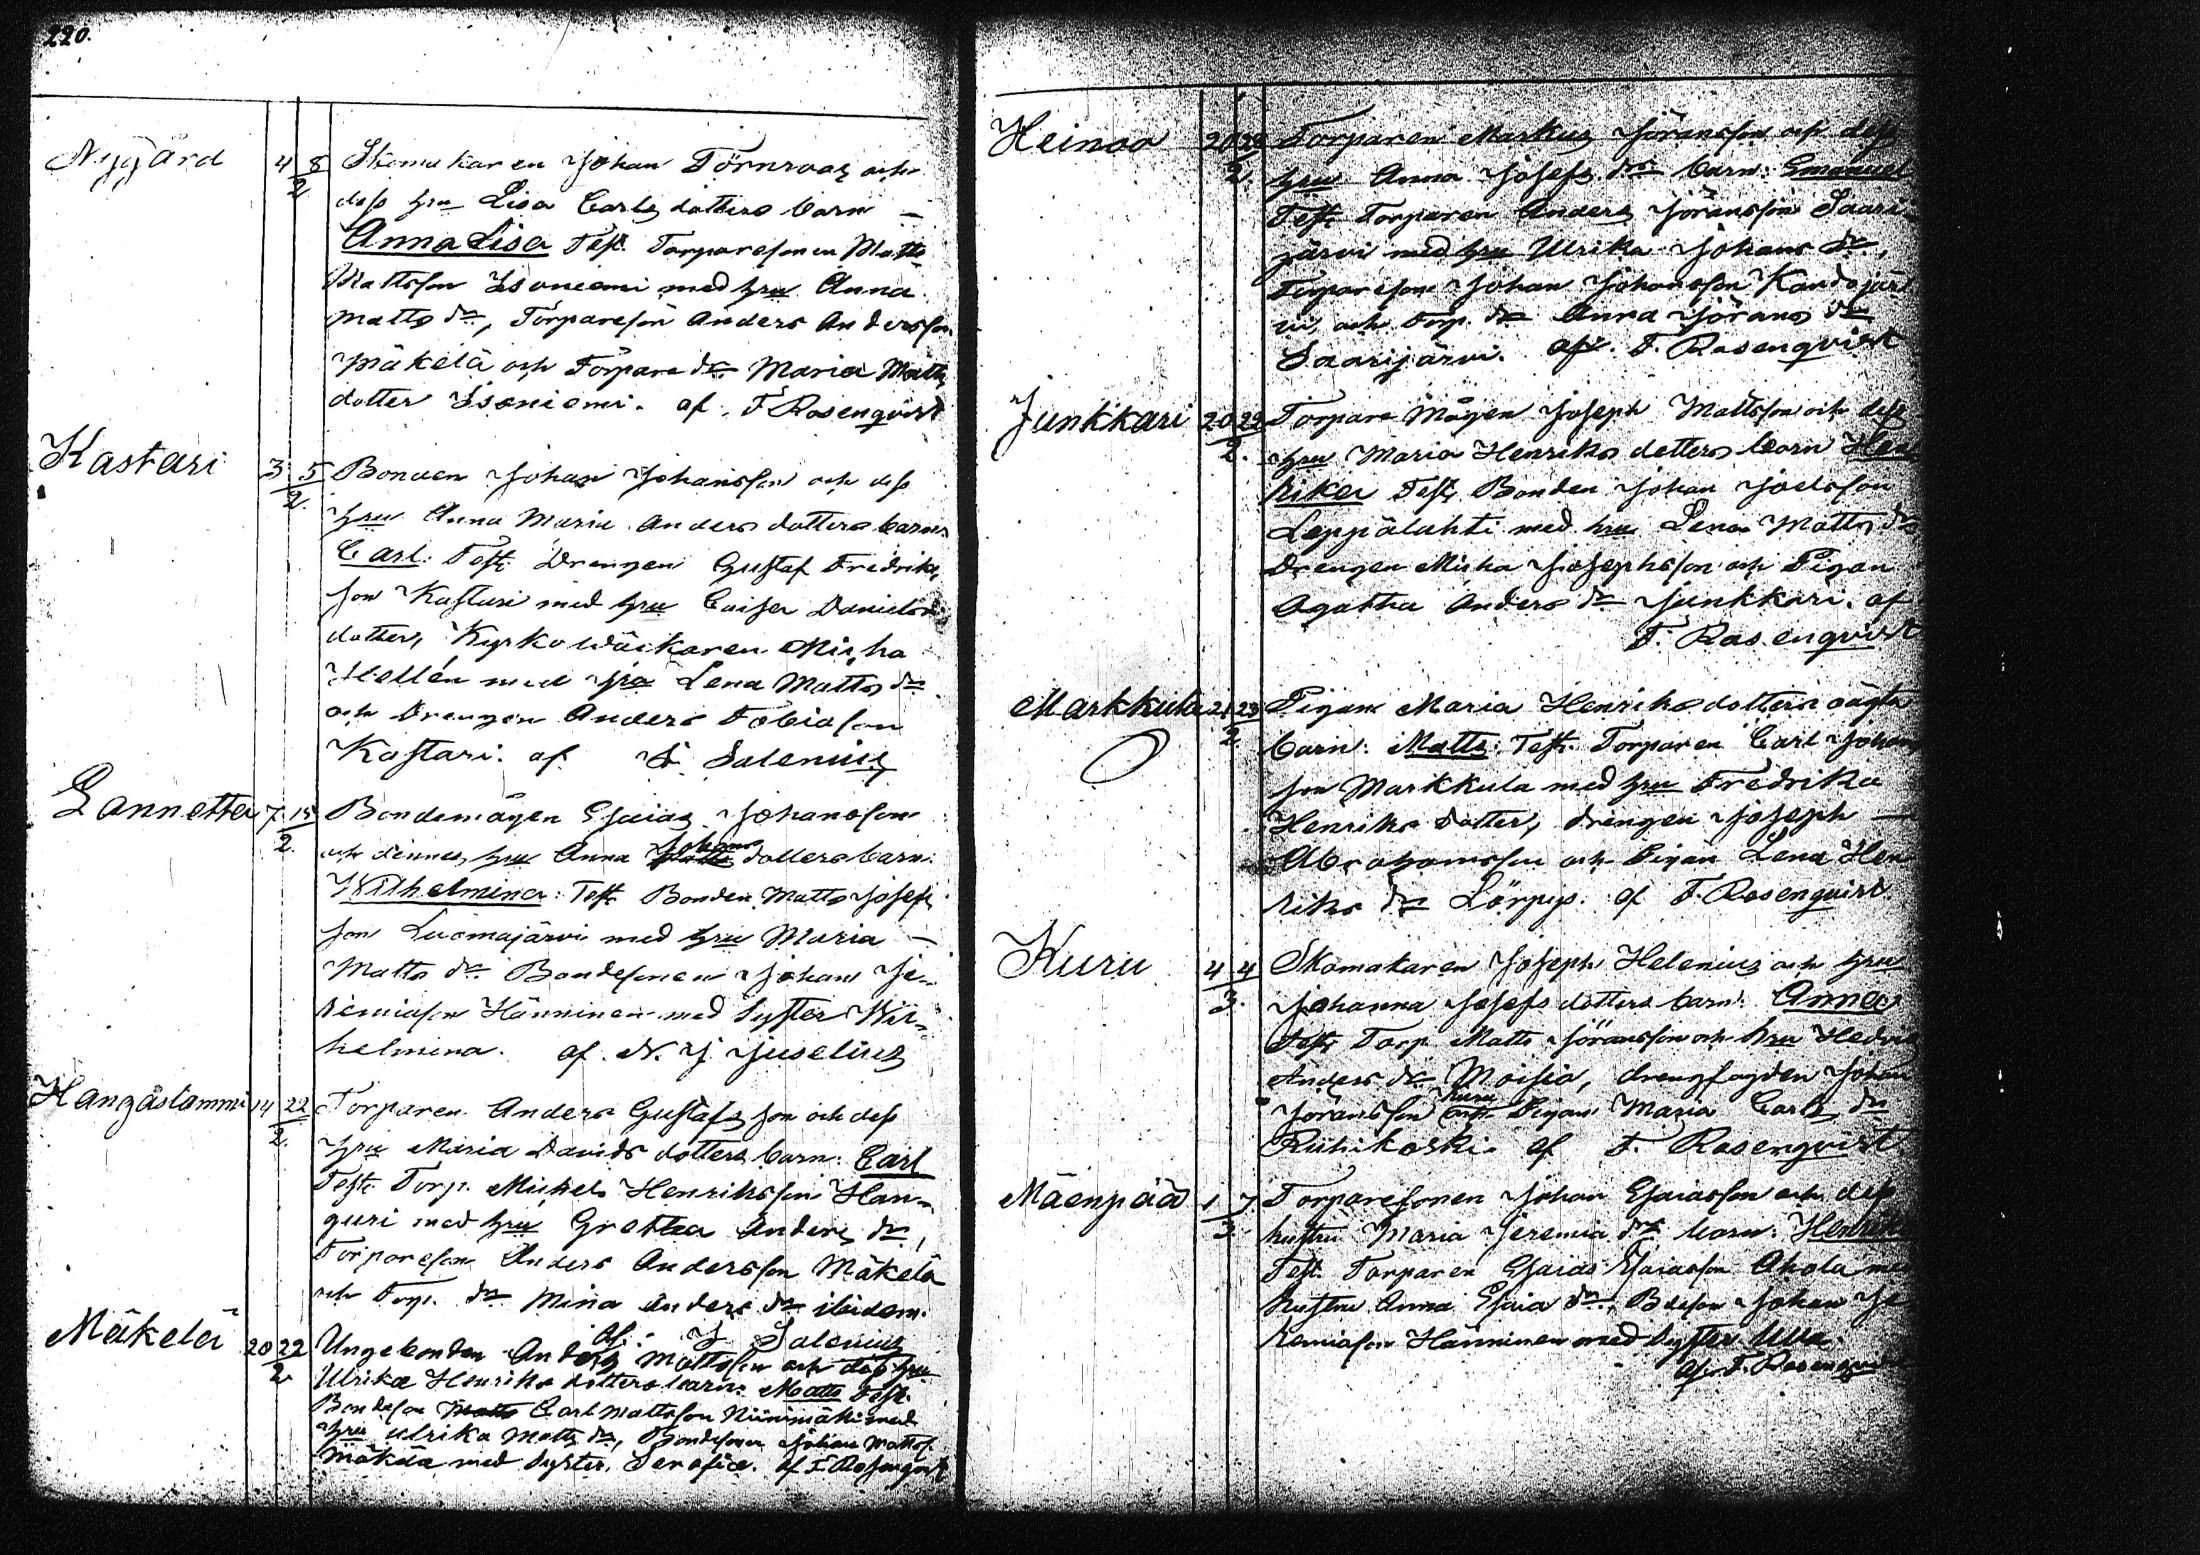 220.
Nygård 4 8/2 Skomakaren Johan Törnroos och
dess hru Lisa Carls dotters barn —
Anna Lisa Test. Torparesonen Matts
Mattsson Isoniemi med hru Anna
Matts dr, Torpareson Anders Andersson
Mäkelä och Torpare dr Maria Matts
dotter Isoniemi. af F Rosenqvist
Kastari 3 5/2 Bonden Johan Johansson och dess
hru Anna Maria Anders dotters barn
Carl. Test. Drengen Gustaf Fredriks
son Kastari med hru Caisa Daniels
dotter, Kyrkowäckaren Micha
Hellén med hru Lena Matts dr
och Drengen Anders Tobiason
Kastari. af Salenius
Lannetta 7 15/2 Bondemågen Esaias Johansson
och dennes hru Anna Johans dotters barn:
Wilhelmina: Test. Bonden Matts Josefs
son Luomajärvi med hru Maria —
Matts dr Bondesonen Johan Je-
remiason Hänninen med Syster Wil-
helmina. af N. J. Juselius
Hangaslammi 14 22/2 Torparen Anders Gustafs son och dess
hru Maria Davids dotters barn: Carl
Test. Torp. Mickel Henriksson Han-
guri med hru Gretha Anders dr,
Torpareson Anders Andersson Mäkelä
och Torp. dr Mina Anders dr ibidem.
af: J Salenius
Mäkelä 20 22/2 Ungebonden Anders Mattsson och dess hru
Ulrika Henriks dotters barn: Matts Test.
Bondeson Matts Carl Mattsson Niinimäki med
hru Ulrika Matts dr, Bondesonen Johan Matts.
Mäkelä med Syster Serafia. af F. Rosenqvist
Heinoa 20 22/2 Torparen Markus Jöransson och dess
hru Anna Josefs drs barn: Emanuel
Test. Torparen Anders Jöransson Saari-
järvi med hru Ulrika Johans dr,
Torpareson Johan Johansson Kandojär
vi, och Torp. dr Anna Jörans dr
Saarijärvi. af. F. Rosenqvist
Junkkari 20 22/2 Torpare Mågen Joseph Mattsson och dess
hru Maria Henriks dotters barn Hen
rika Test. Bonden Johan Joelsson
Leppälahti med hru Lena Matts dr
Drengen Micha Josephsson och Pigan
Agatha Anders dr Junkkari. af
F. Rosenqvist
Markkula 21 23/2 Pigan Maria Henriks dotters oägta
barn: Matts: Test. Torparen Carl Johan
son Markkula med hru Fredrika
Henriks dotter, drengen Joseph —
Abrahamsson och Pigan Lena Hen
riks dr Lörpys. af F. Rosenqvist.
Kuru 4 4/3 Skomakaren Joseph Helenius och hru
Johanna Josefs dotters barn: Anna
Test. Torp Matts Jöransson och hru Hedvi
Anders dr Moisio, drengfogden Johan
Jöransson Kuru och Pigan Maria Carls dr
Riihikoski. af F. Rosenqvist.
Mäenpää 1 7/3 Torparesonen Johan Esaiasson och dess
hustru Maria Jeremia drs barn: Henrik
Test. Torparen Esaias Esaiasson Ahola med
hustru Anna Esaia dr, Bdeson Johan Je
remiason Hänninen med Syster Ulla.
af. F. Rosenqvist